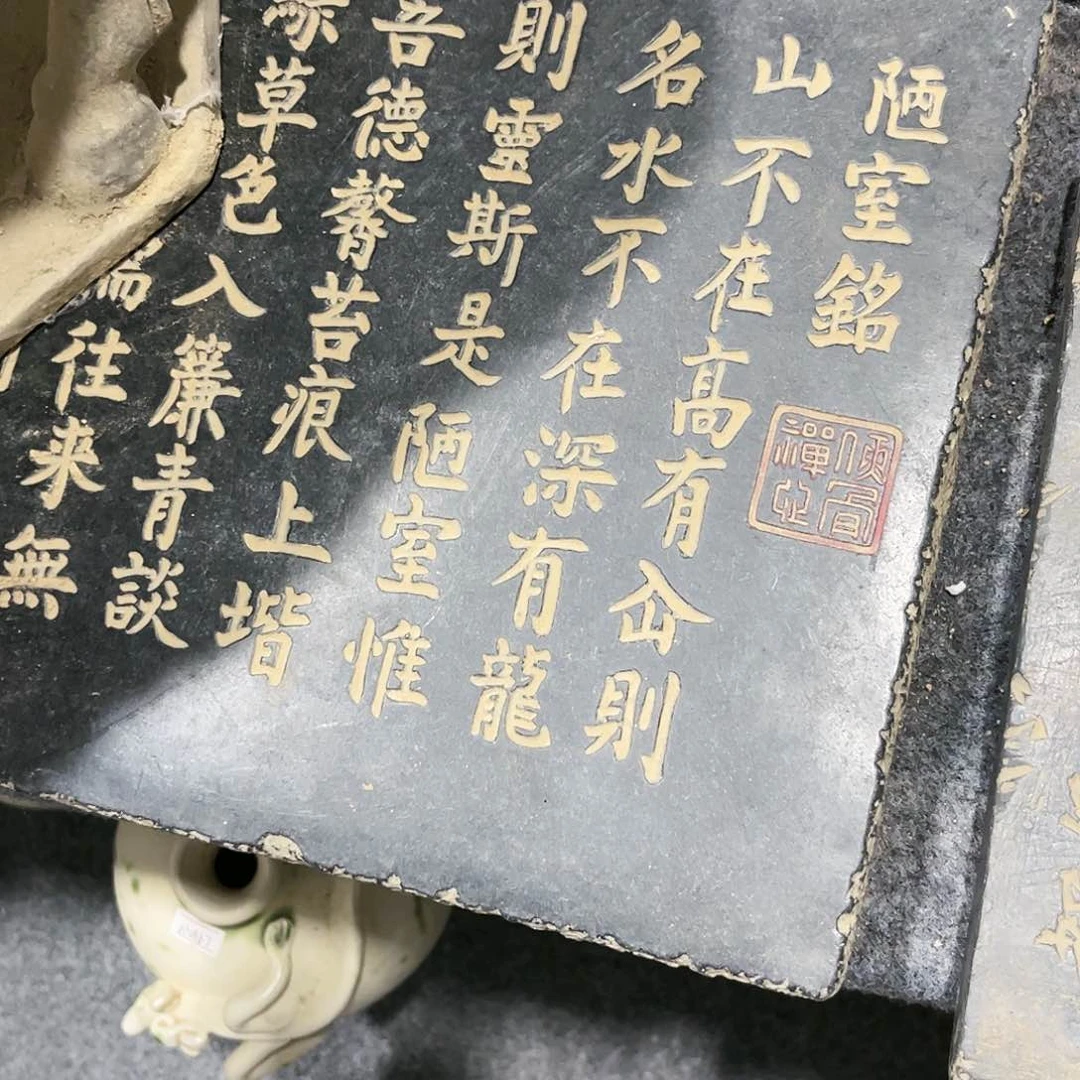 陋室銘
山不在高有仚則
名水不在深有龍
則靈斯是陋室惟
吾德馨苔痕上堦
草色入簾青談
往来無